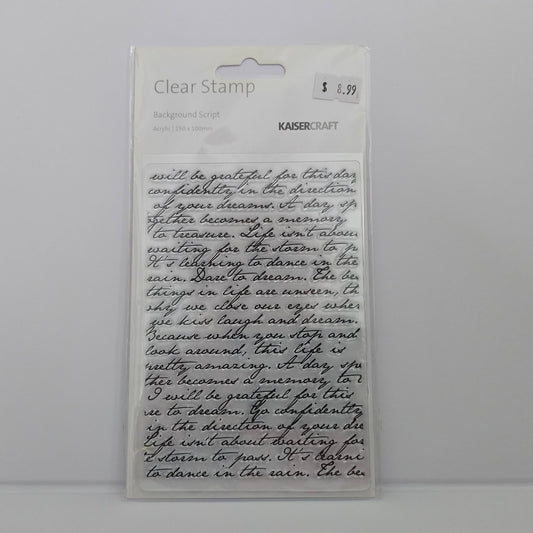 Clear Stamp
$ 8.99
Background Script
Acrylic | 150 x 100mm
KAISERCRAFT
will be grateful for this day
confidently in the direction
of your dreams. A day sp
ogether becomes a memory
to treasure. Life isn't about
waiting for the storm to p
It's learning to dance in the
rain. Dare to dream. The be
things in life are unseen, th
why we close our eyes when
we kiss laugh and dream.
Because when you stop and
look around, this life is
pretty amazing. A day spe
ther becomes a memory to
I will be grateful for this
re to dream. Go confidently
in the direction of your dre
Life isn't about waiting for
storm to pass. It's learni
to dance in the rain. The be